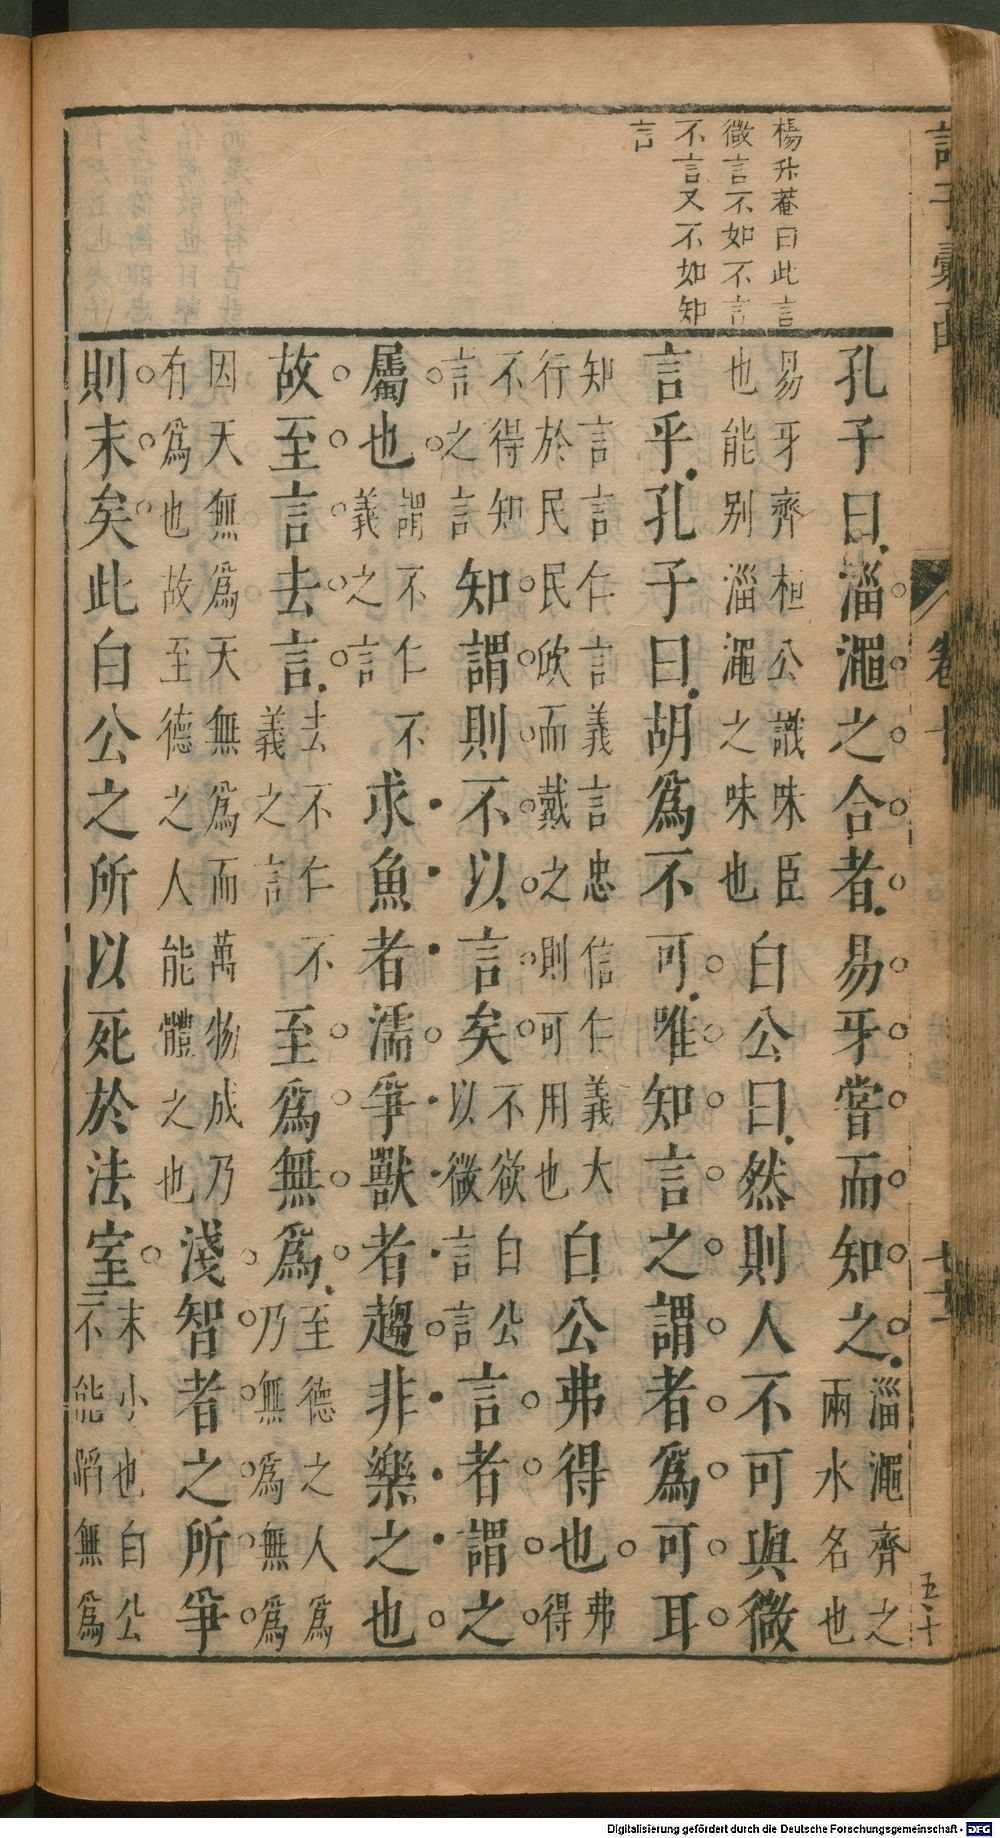 楊升菴曰此言
微言不如不言
不言又不如知
言
孔子曰淄澠之合者易牙嘗而知之淄澠齊之兩水名也
易牙齊桓公識味臣也能別淄澠之味也白公曰然則人不可與微
言乎孔子曰胡爲不可唯知言之謂者爲可耳
知言言仁言義言忠信仁義大行於民民欣而戴之則可用也白公弗得也弗得
不得知言之言知謂則不以言矣不欲白公以微言言言者謂之
屬也謂不仁不義之言求魚者濡爭獸者趨非樂之也
故至言去言去不仁不義之言至爲無爲至德之人爲乃無爲無爲
因天無爲天無爲而萬物成乃有爲也故至德之人能體之也淺智者之所爭
則末矣此白公之所以死於法室末小也白公不能蹈無爲
五十
Digitalisierung gefördert durch die Deutsche Forschungsgemeinschaft - DFG